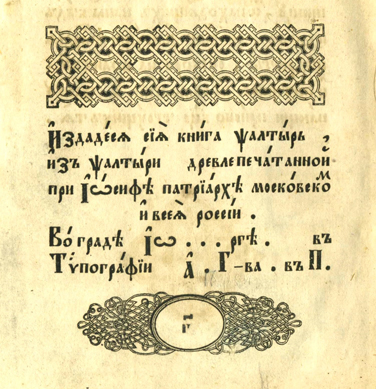 И҆здаде́сѧ сїѧ̀ кни́га ѱалты́рь
и҆зъ ѱалты́ри древлепеча́таннои҆
при І҆ѡ́сифѣ патрїа́рхѣ моско́вскоⷨ
и҆ всеѧ̀ россі́и .
Во́ градѣ І҆ѡ . . . ргѣ . въ
Тѷпогра́фїи А҆ . Г–ва . въ П .